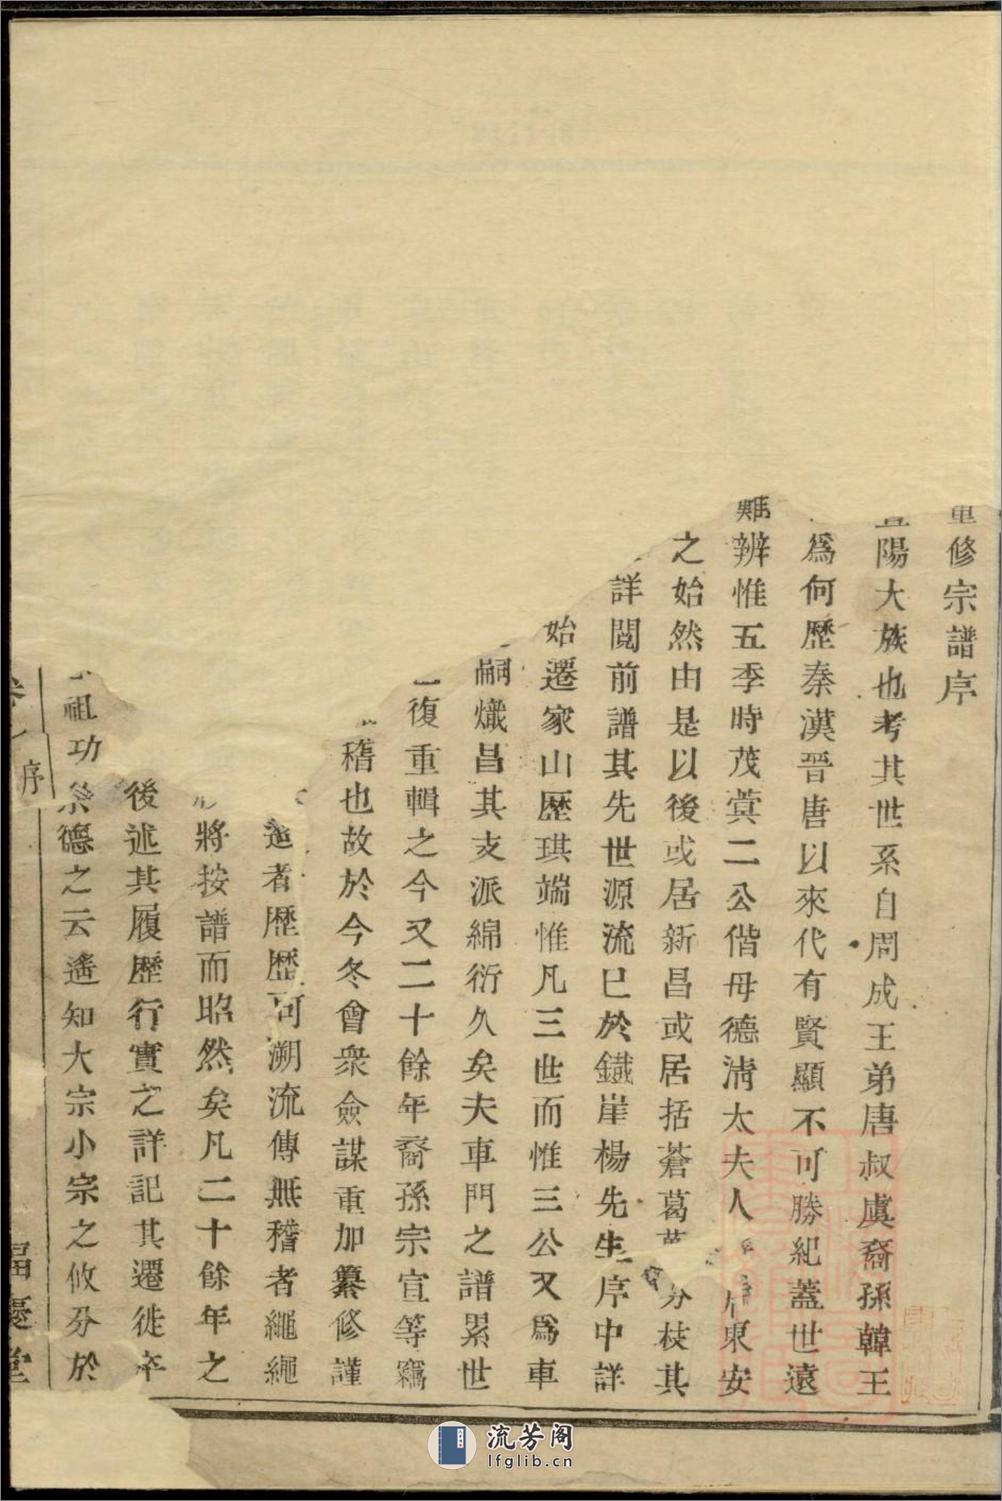 重修宗譜序
陽大族也考其世系自周成王弟唐叔虞裔孫韓王
爲何歷秦漢晉唐以來代有賢顯不可勝紀蓋世遠
難辨惟五季時茂蓂二公偕母德淸太夫人居東安
之始然由是以後或居新昌或居括蒼葛萬分枝其
詳閲前譜其先世源流已於鐵崖楊先生序中詳
始遷家山歷琪端惟凡三世而惟三公又爲車
嗣熾昌其支派綿衍久矣夫車門之譜累世
復重輯之今又二十餘年裔孫宗宣等竊
稽也故於今冬會衆僉謀重加纂修謹
造者歷歷可溯流傳無稽者繩繩
將按譜而昭然矣凡二十餘年之
後述其履歷行實之詳記其遷徙卒
祖功宗德之云遙知大宗小宗之攸分於
卷一 序 福慶堂
流芳阁
lfglib.cn